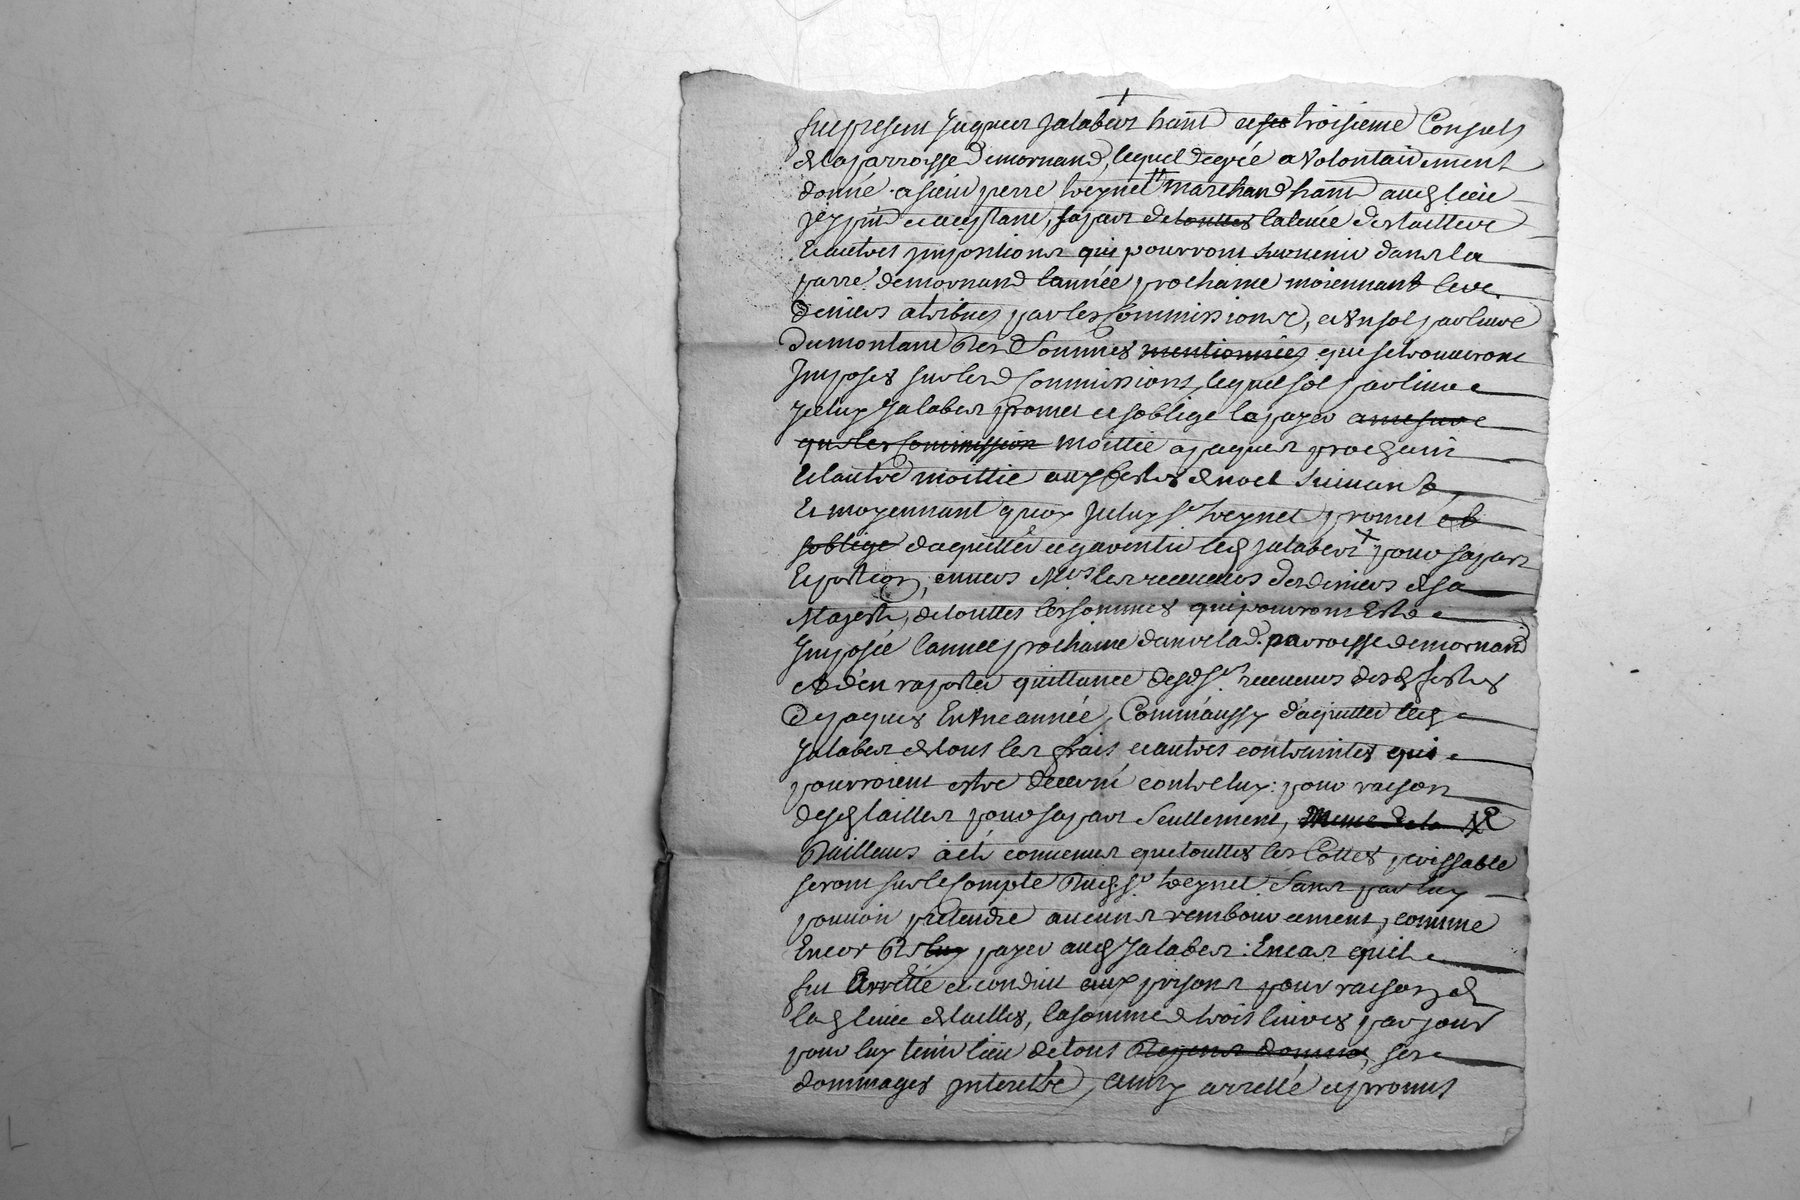 fut present Jaques Jalabert hant et ses troisieme Consuls
de la parroisse de mornand, lequel de gré a volontairement
donné a sieur pierre treynet marchand hant aud lieu
icy pnt et acceptant, sa part de touttes la levée des tailles
et autres impositions qui pourront survenir dans la
parre de mornand l'année prochaine moiennant les
deniers atribues par les Commissions, et un sol par livre
du montant desd sommes mentionnées qui se trouveront
Imposés sur lesd Commissions, lequel sol par livre
Iceluy Jalabert promet et soblige la payer a mesure
que les Commission moittié a paques prochain
et lautre moittié aux festes de noel suivant,
Et moyennant quoy Iceluy sr treynet promet et
soblige daquitter et garentir led Jalabert pour sa part
Et portion, envers Mrs les receveurs des deniers de sa
Majesté, de touttes les sommes qui pouront Estre
Imposée l'année prochaine dans lad. parroisse de mornand
et d'en raporter quittance desd srs receveurs desd festes
de paques En une année, Comm'aussy d'aquitter led
Jalabert de tous les frais et autres contraintes qui
pourroient estre decerné contre luy: pour raison
desd tailles pour sa part seullement, Meme de la
d'ailleurs a été convenus que touttes les Cottes
seront sur le Compte dud. sr treynet sans par luy
pouvoir pretendre aucuns rembourcement, comme
Encor de luy payer aud Jalabert: En cas quil
fut Arretté et conduit aux prisons pour raison de
lad levée de tailles, la somme de trois livres par jour
pour luy tenir lieu de tous ses
dommages interetbe, ainsy arretté et promis